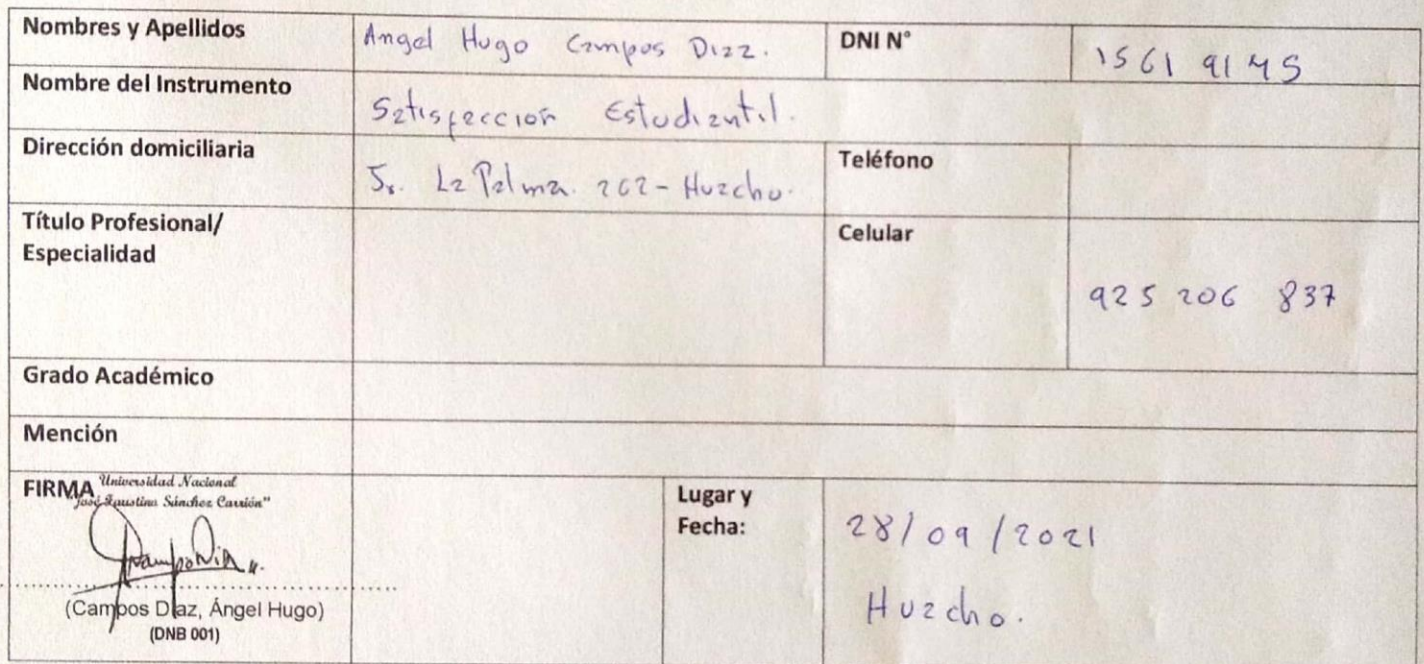 Nombres y Apellidos
Angel Hugo Campos Diaz.
DNI N°
1561 9145
Nombre del Instrumento
Satisfacción Estudiantil.
Dirección domiciliaria
Jr. La Palma. 262 - Huacho.
Teléfono
Título Profesional/
Especialidad
Celular
925 206 837
Grado Académico
Mención
FIRMA
Universidad Nacional
"José Faustino Sánchez Carrión"
(Campos Díaz, Ángel Hugo)
(DNB 001)
Lugar y
Fecha:
28/09/2021
Huacho.